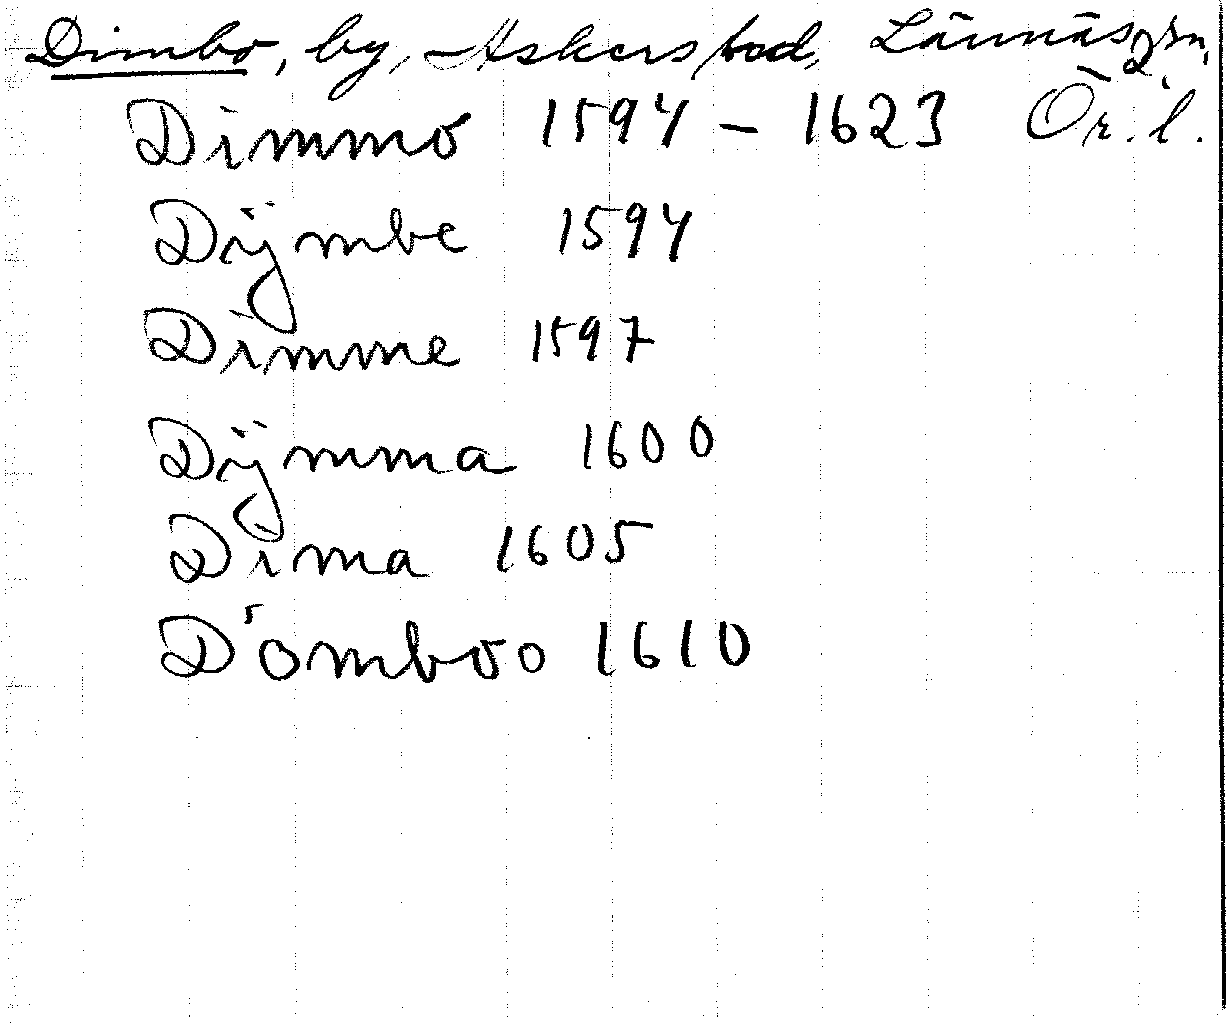 Dimbo, by, Askersbod, Lännäs sn,
Dimmo 1594 – 1623 Ör. l.
Dÿmbe 1594
Dimme 1597
Dÿmma 1600
Dima 1605
Dömboo 1610